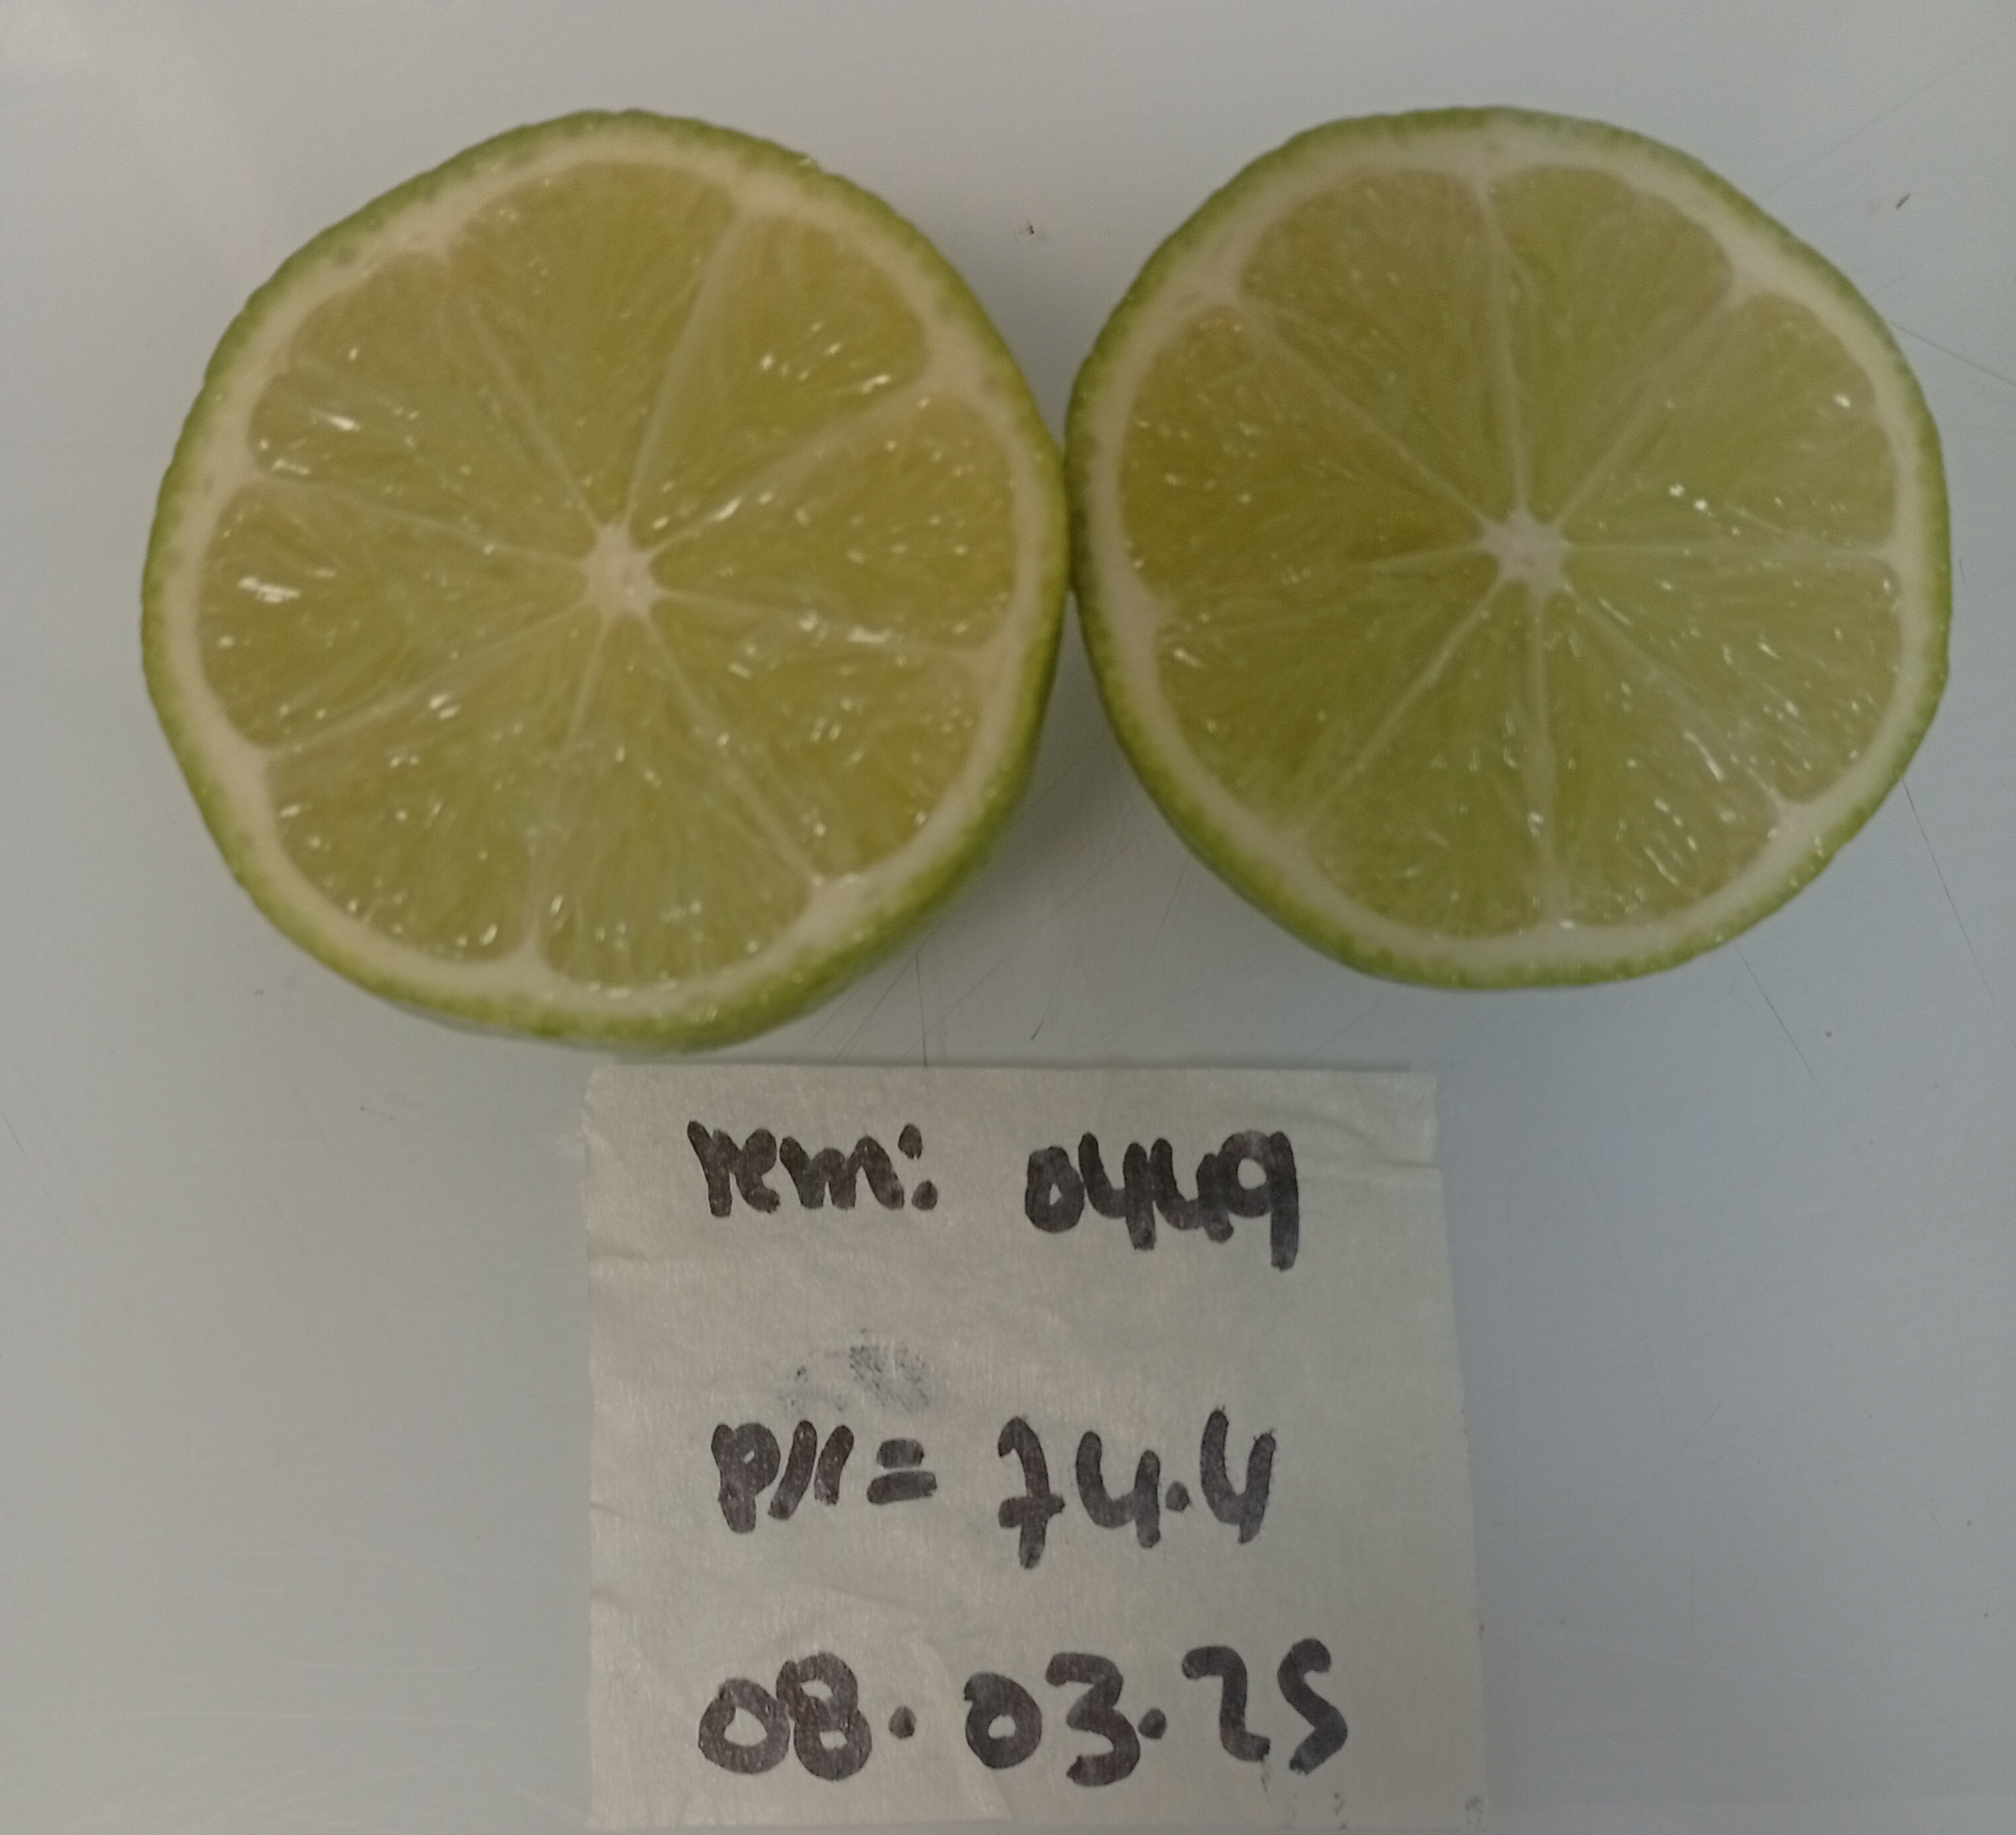 rem: 0449
px= 74.4
08.03.25